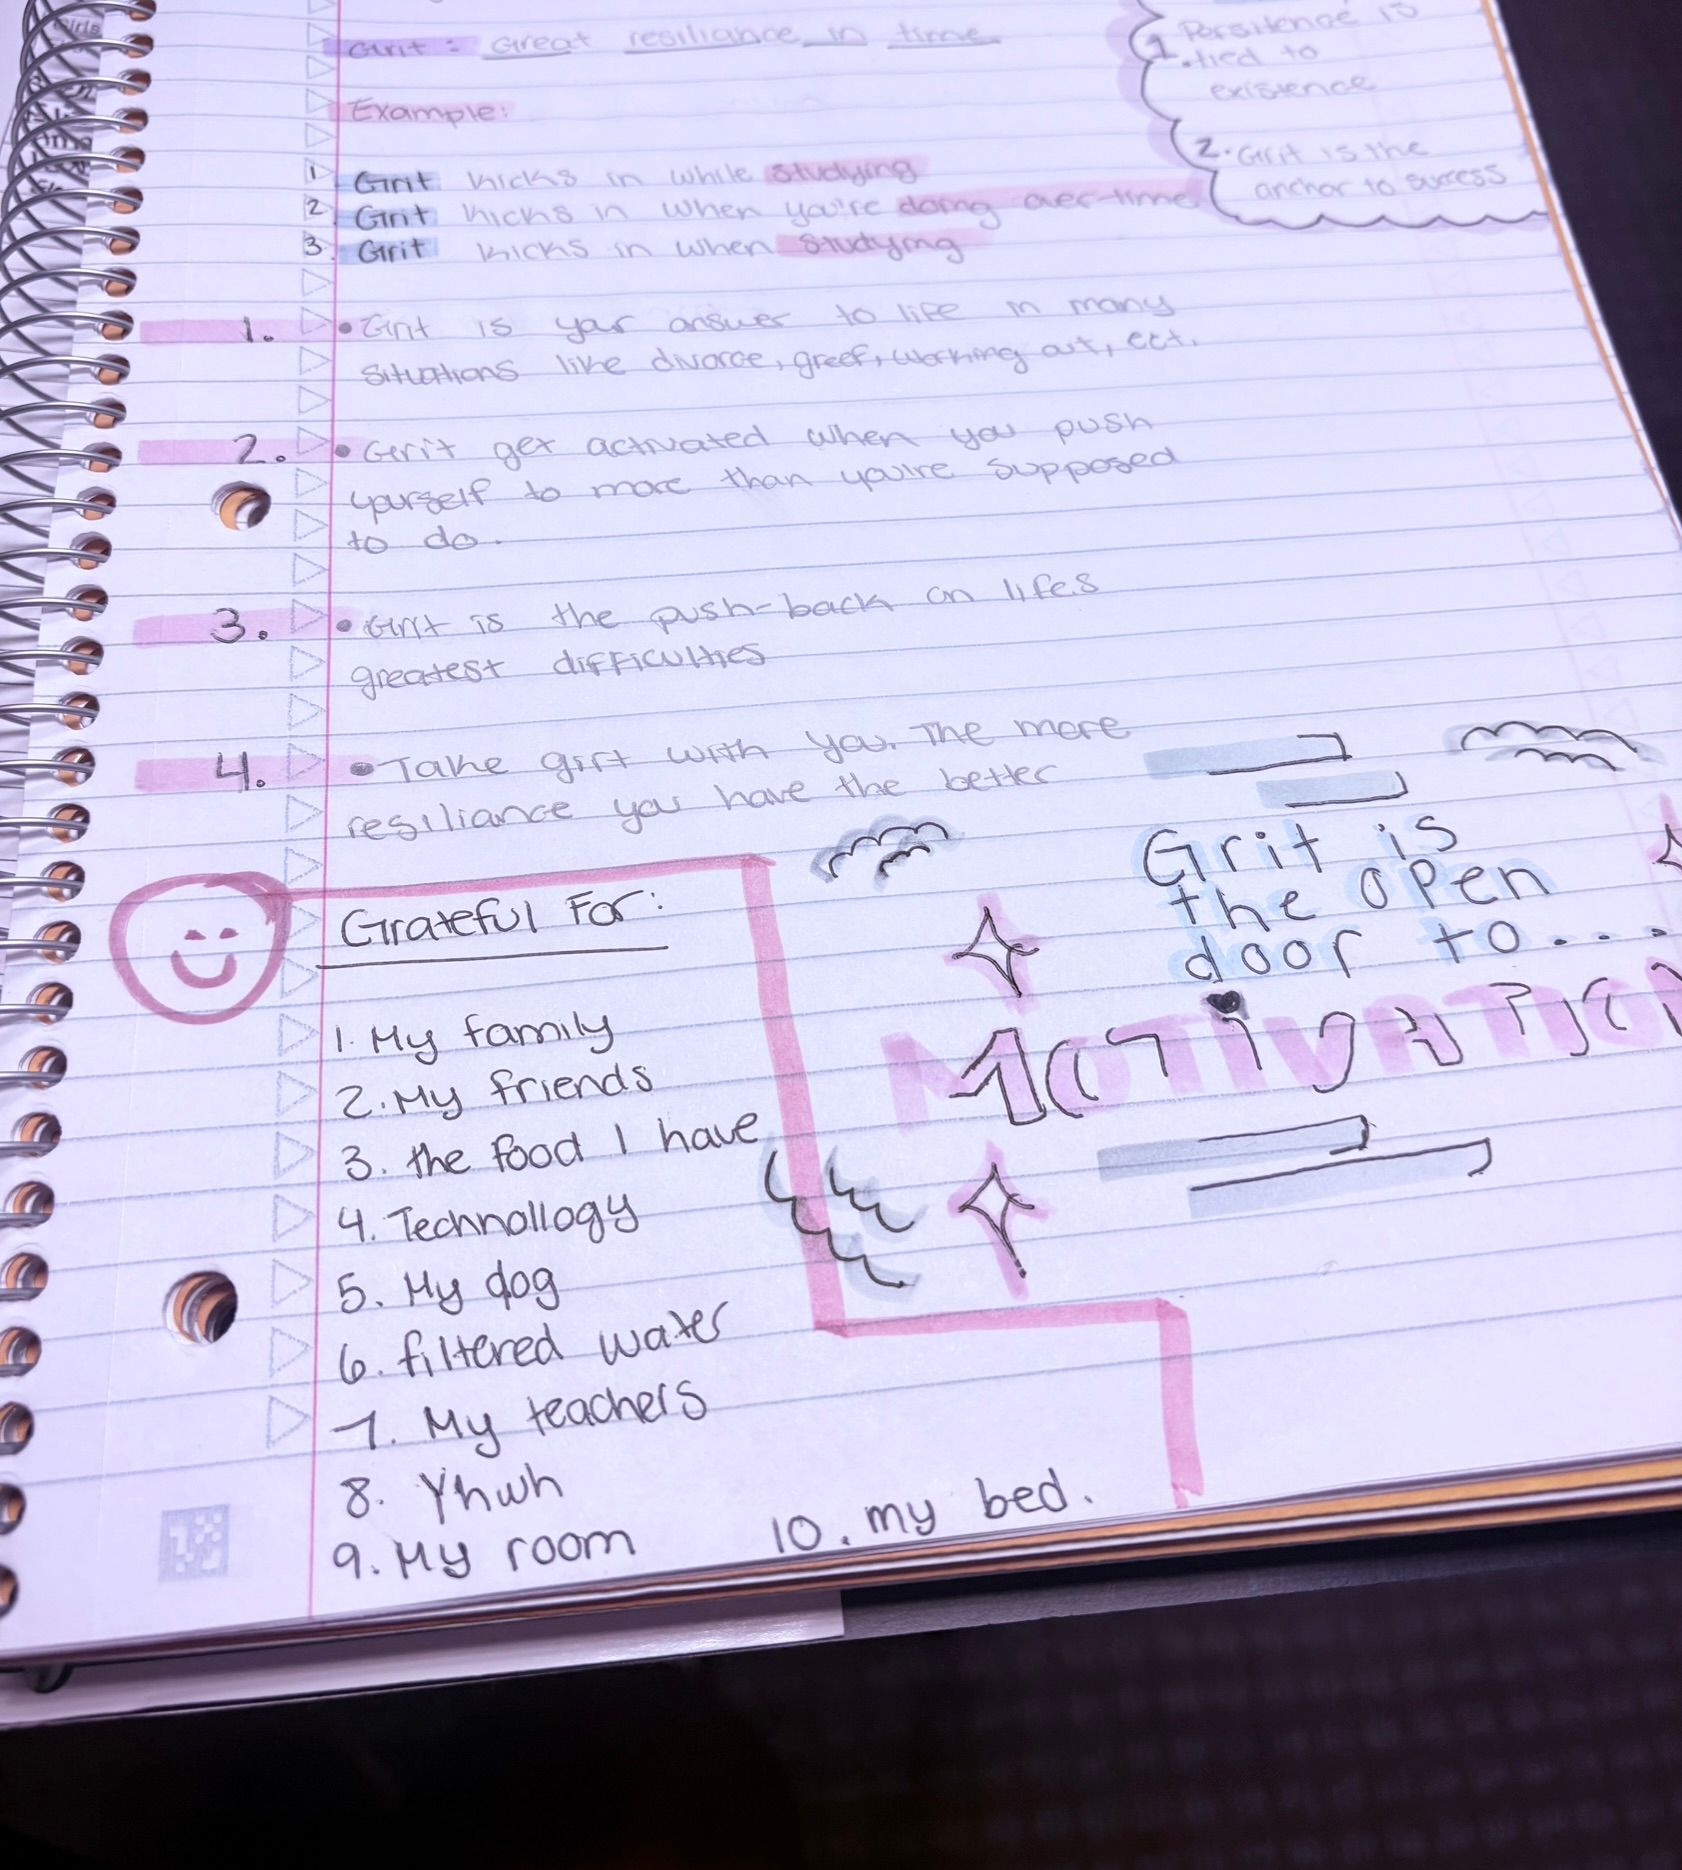 Grit: Great resiliance in time
1. Persitence is
tied to
existence
2. Grit is the
anchor to success
Example:
1 Grit kicks in while studying
2 Grit kicks in when you're doing over-time
3. Grit kicks in when studying
1. • Grit is your answer to life in many
situations like divorce, greef, working out, ect.
2. • Grit get activated when you push
yourself to more than you're supposed
to do.
3. • Grit is the push-back on lifes
greatest difficulties
4. • Take girt with you. The more
resiliance you have the better
Grit is
the open
door to...
MOTIVATION
Grateful For:
1. My family
2. My friends
3. the food I have
4. Technollogy
5. My dog
6. filtered water
7. My teachers
8. Yhwh
9. My room 10. my bed.